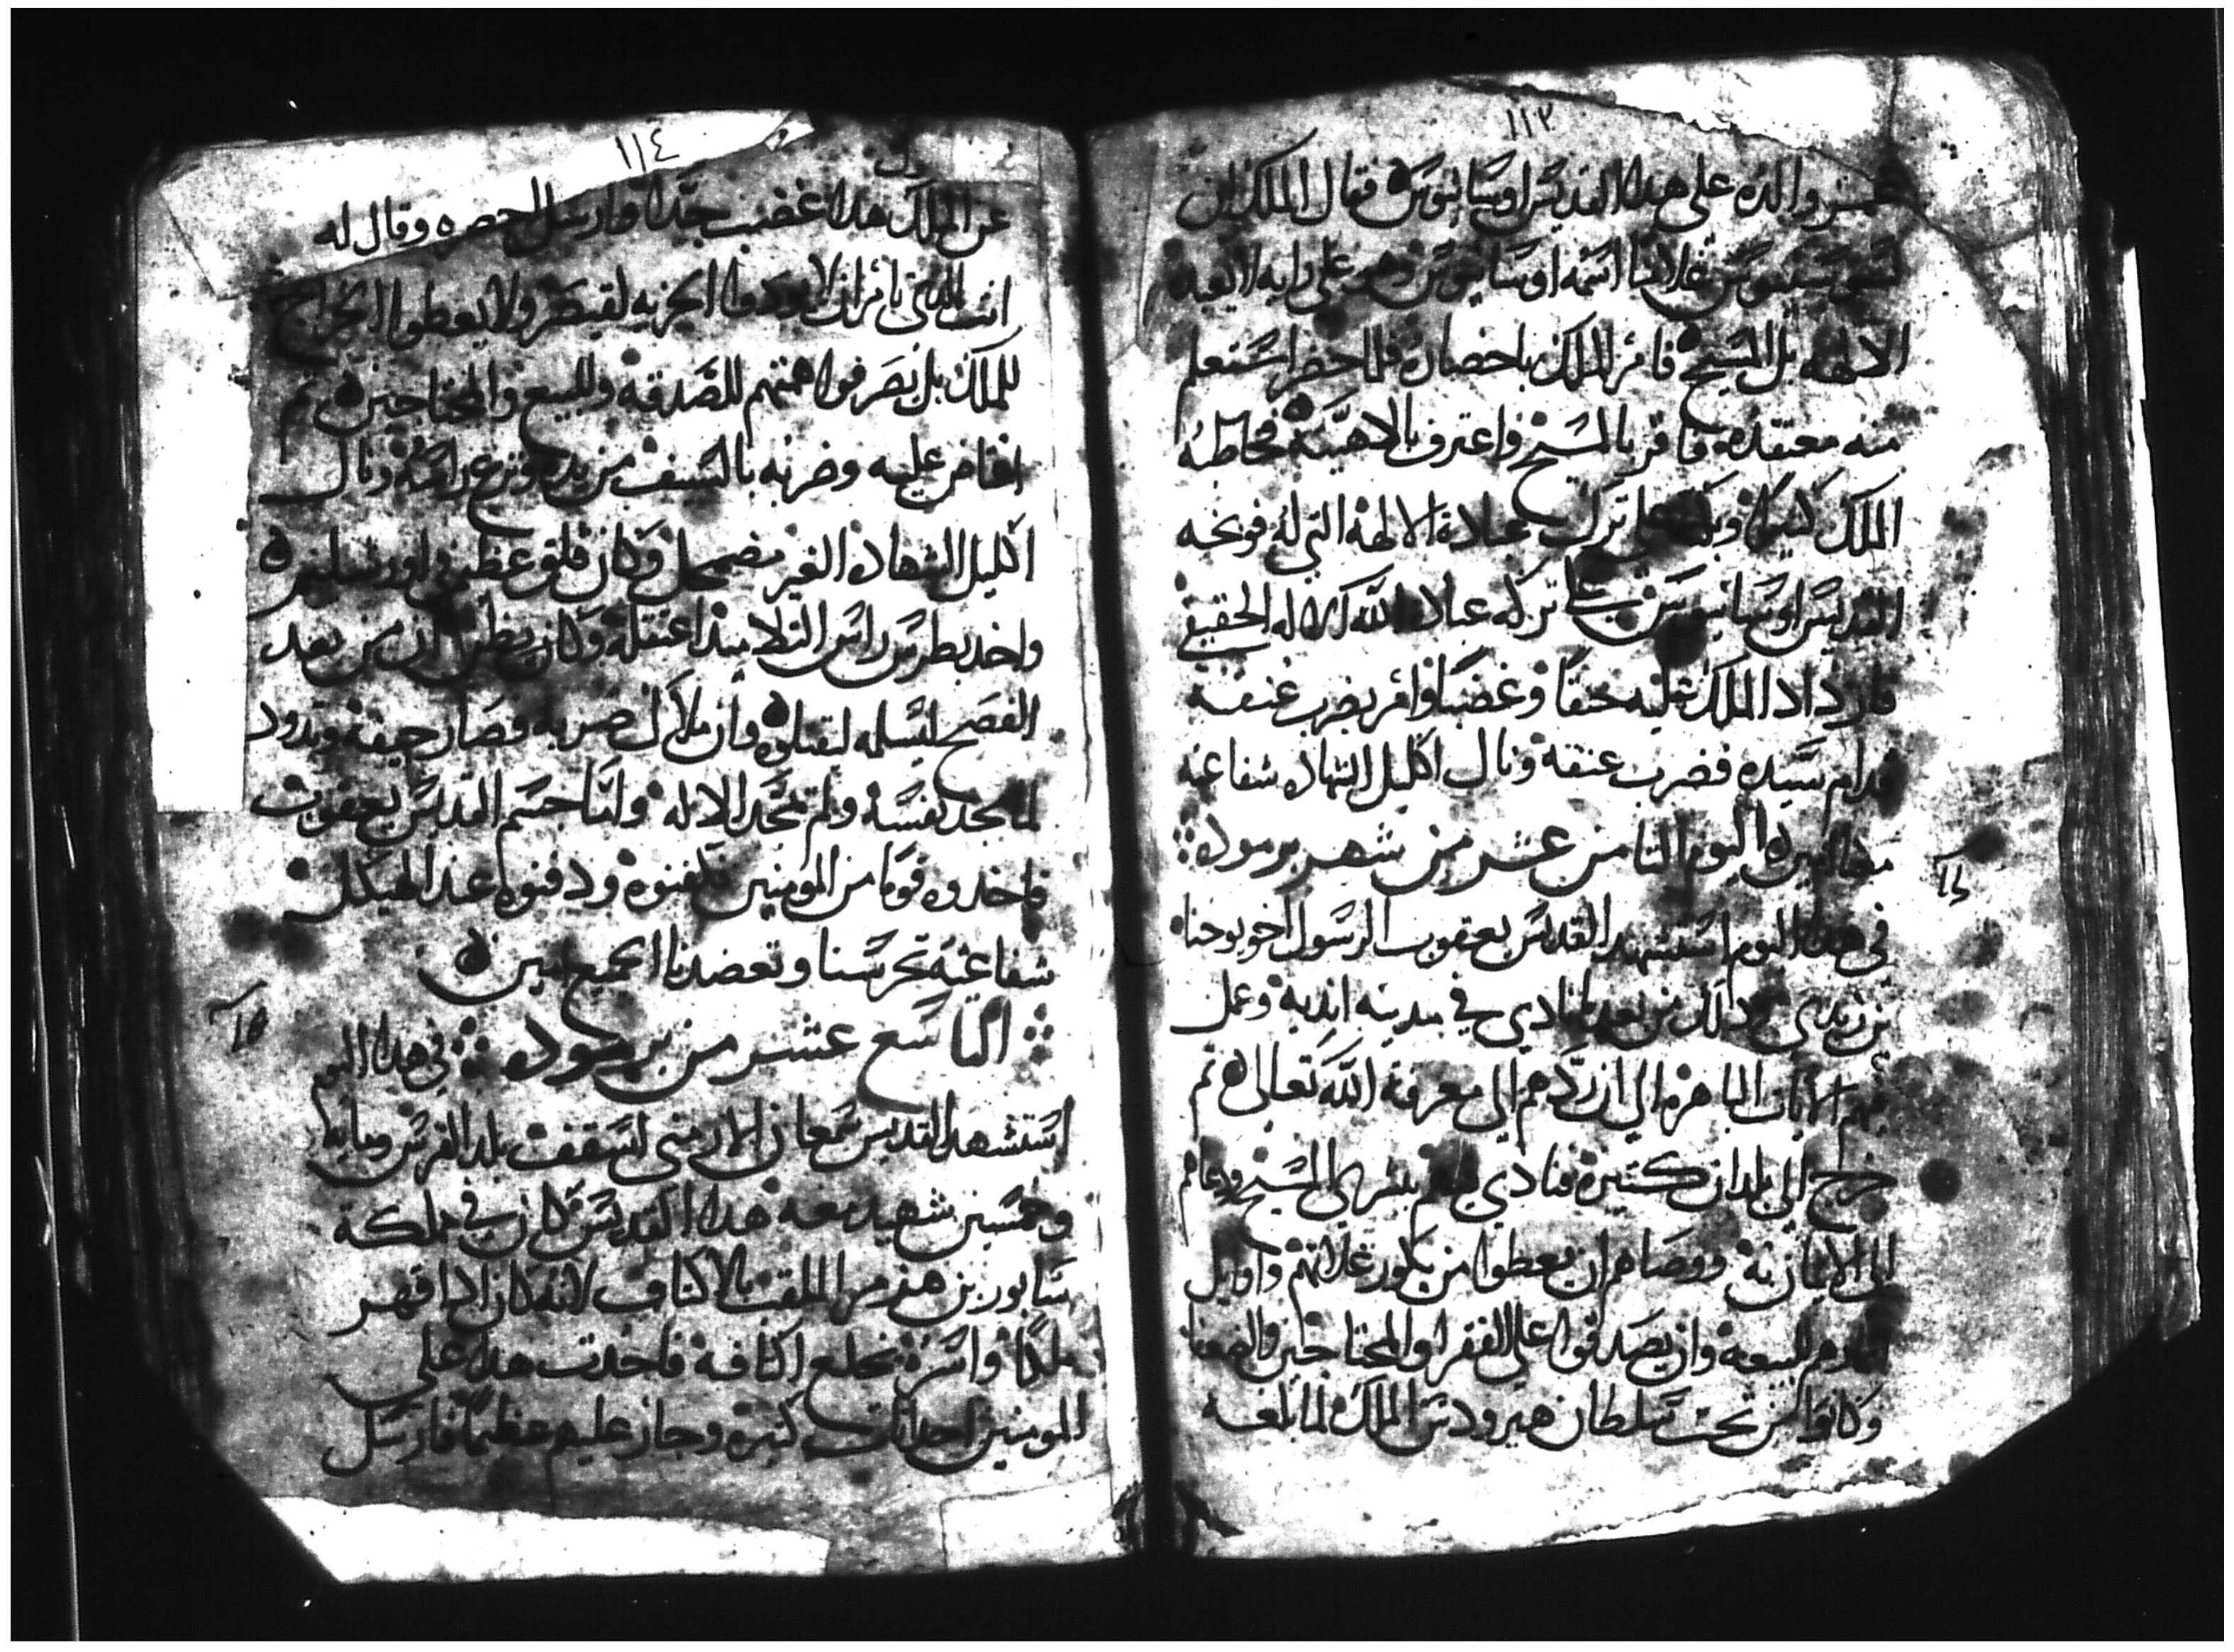 ١١٣
والده على هدا القديس اوسانيوس فقال الملك ان
اسمه اوسانيوس وهو على رايه لا يعبد
الالهه بل المسيح فامر الملك باحضاره فلما حضر استعلم
منه معتقده فاقر بالمسيح واعترف بالاهيته فخاطبه
الملك كثيرا على ترك عبادة الالهة التي له فوبخه
القديس اوسانيوس على تركه عبادة الله الاله الحقيقي
فازداد الملك عليه حنقا وغضبا وامر بضرب عنقه
قدام سيده فضرب عنقه ونال اكليل الشهاده شفاعته
معنا امين اليوم التامن عشر من شهر برموده
في هدا اليوم استشهد القديس يعقوب الرسول اخو يوحنا
بن زبدي ودلك من بعد ما نادي في مدينه ابديه وعمل
فيهم الايات الباهره الي ان ردهم الي معرفة الله تعالي تم
خرج الي بلدان كتيرة فنادي فيهم ببشري المسيح ودعاهم
الى الايمان به ووصاهم ان يعطوا من بكور غلاتهم واوايل
للبيعه وان يصدقوا على الفقرا والمحتاجين والضعفا
وكانوا تحت سلطان هيرودس الملك لما بلغه
١١٤
عن الملك هدا غضب جدا وارسل احضره وقال له
انت الدي تامر ان لا يودوا الجزيه لقيصر ولا يعطوا الخراج
للملك بل يصرفوا همتهم للصدقه وللبيع والمحتاجين تم
افاض عليه وضربه بالسيف من يده ونزع راسه ونال
اكليل الشهاده الغير مضمحل وكان قلق عظيم في اورشليم
واخد بطرس راس التلاميد اعتقله وكان يظن ان من بعد
الفصح ليسلمه ليقتلوه وان ملاك ضربه فصار جيفة وتدود
لما مجد نفسه ولم يمجد الاله واما جسم القديس يعقوب
فاخدوه قوما من المومنين وكفنوه ودفنوه عند الهيكل
شفاعته تحرسنا وتعضدنا الجميع امين
التاسع عشر من برموده في هدا اليوم
استشهد القديس سمعان الارمني اسقف بلد الفرس ومايه
وخمسين شهيد معه هدا القديس كان في مملكة
سابور بن هرمز الملقب بالاكتاف لانه كان ادا قهر
ملكا واسره يخلع اكتافه فاحدت هدا علي
المومنين احداتات كتيره وجار عليهم عظيما فارسل